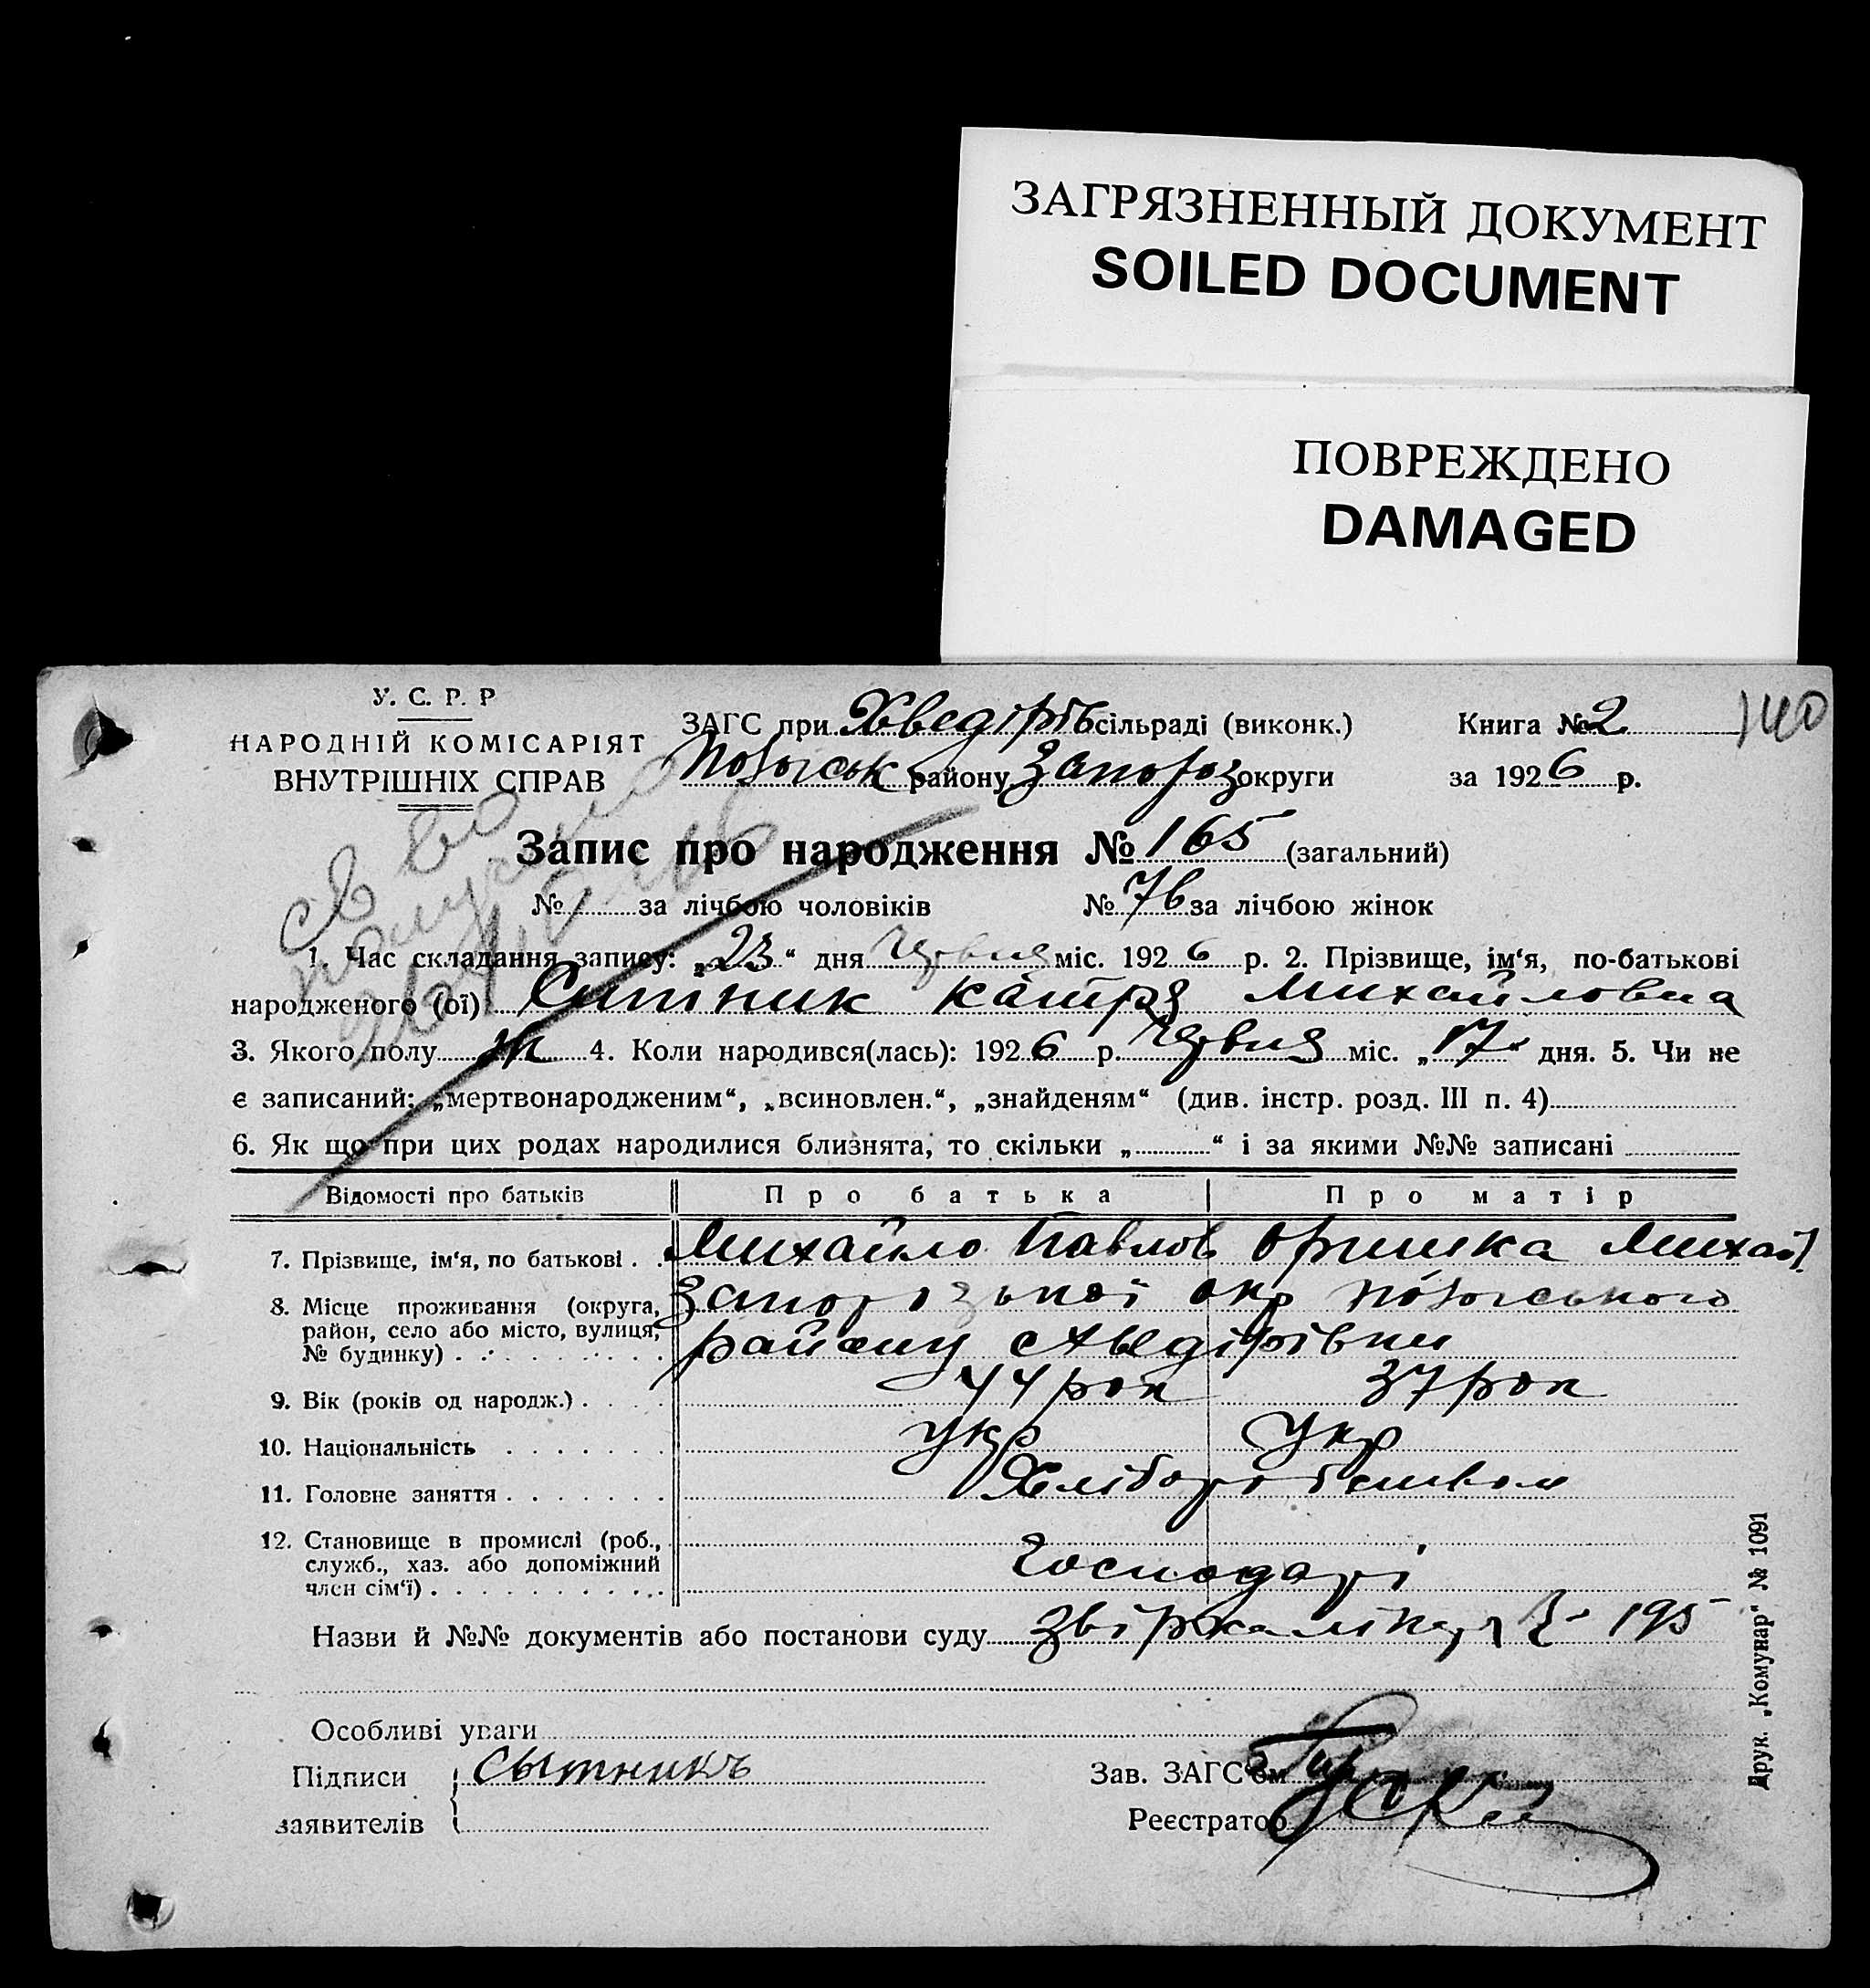 ЗАГРЯЗНЕННЫЙ ДОКУМЕНТ
SOILED DOCUMENT
ПОВРЕЖДЕНО
DAMAGED
У. С. Р. Р
НАРОДНІЙ КОМІСАРІЯТ
ВНУТРІШНІХ СПРАВ
140
ЗАГС при Хведірів сільраді (виконк.) Книга № 2
району Запороз округи за 1926 р.
Запис про народження № 165 (загальний)
№ за лічбою чоловіків № 76 за лічбою жінок
1. Час складання запису: „23“ дня червня міс. 1926 р. 2. Прізвище, ім‘я, по-батькові
народженого (ої) Ситник Катря Михайловна
3. Якого полу ж 4. Коли народився(лась): 1926 р. червня міс. „17“ дня. 5. Чи не
є записаний: „мертвонародженим“, „всиновлен.“, „знайденям“ (див. інстр. розд. III п. 4)
6. Як що при цих родах народилися близнята, то скільки „ “ і за якими №№ записані
Відомості про батьків Про батька Про матір
7. Прізвище, ім‘я, по батькові Михайло Павлов Оришка Михай
8. Місце проживання (округа, район, село або місто, вулиця, № будинку) Запорізької окр
району Хведірівки
9. Вік (років од народж.) 44 рок 37 рок
10. Національність укр Укр
11. Головне заняття Хліборобством
12. Становище в промислі (роб., служб., хаз. або допоміжний член сім‘ї) Господарі
Назви й №№ документів або постанови суду 195
Особливі уваги
Підписи заявителів Сытникъ
Зав. ЗАГС‘ом
Реєстратор
Друк. „Комунар“ № 1091